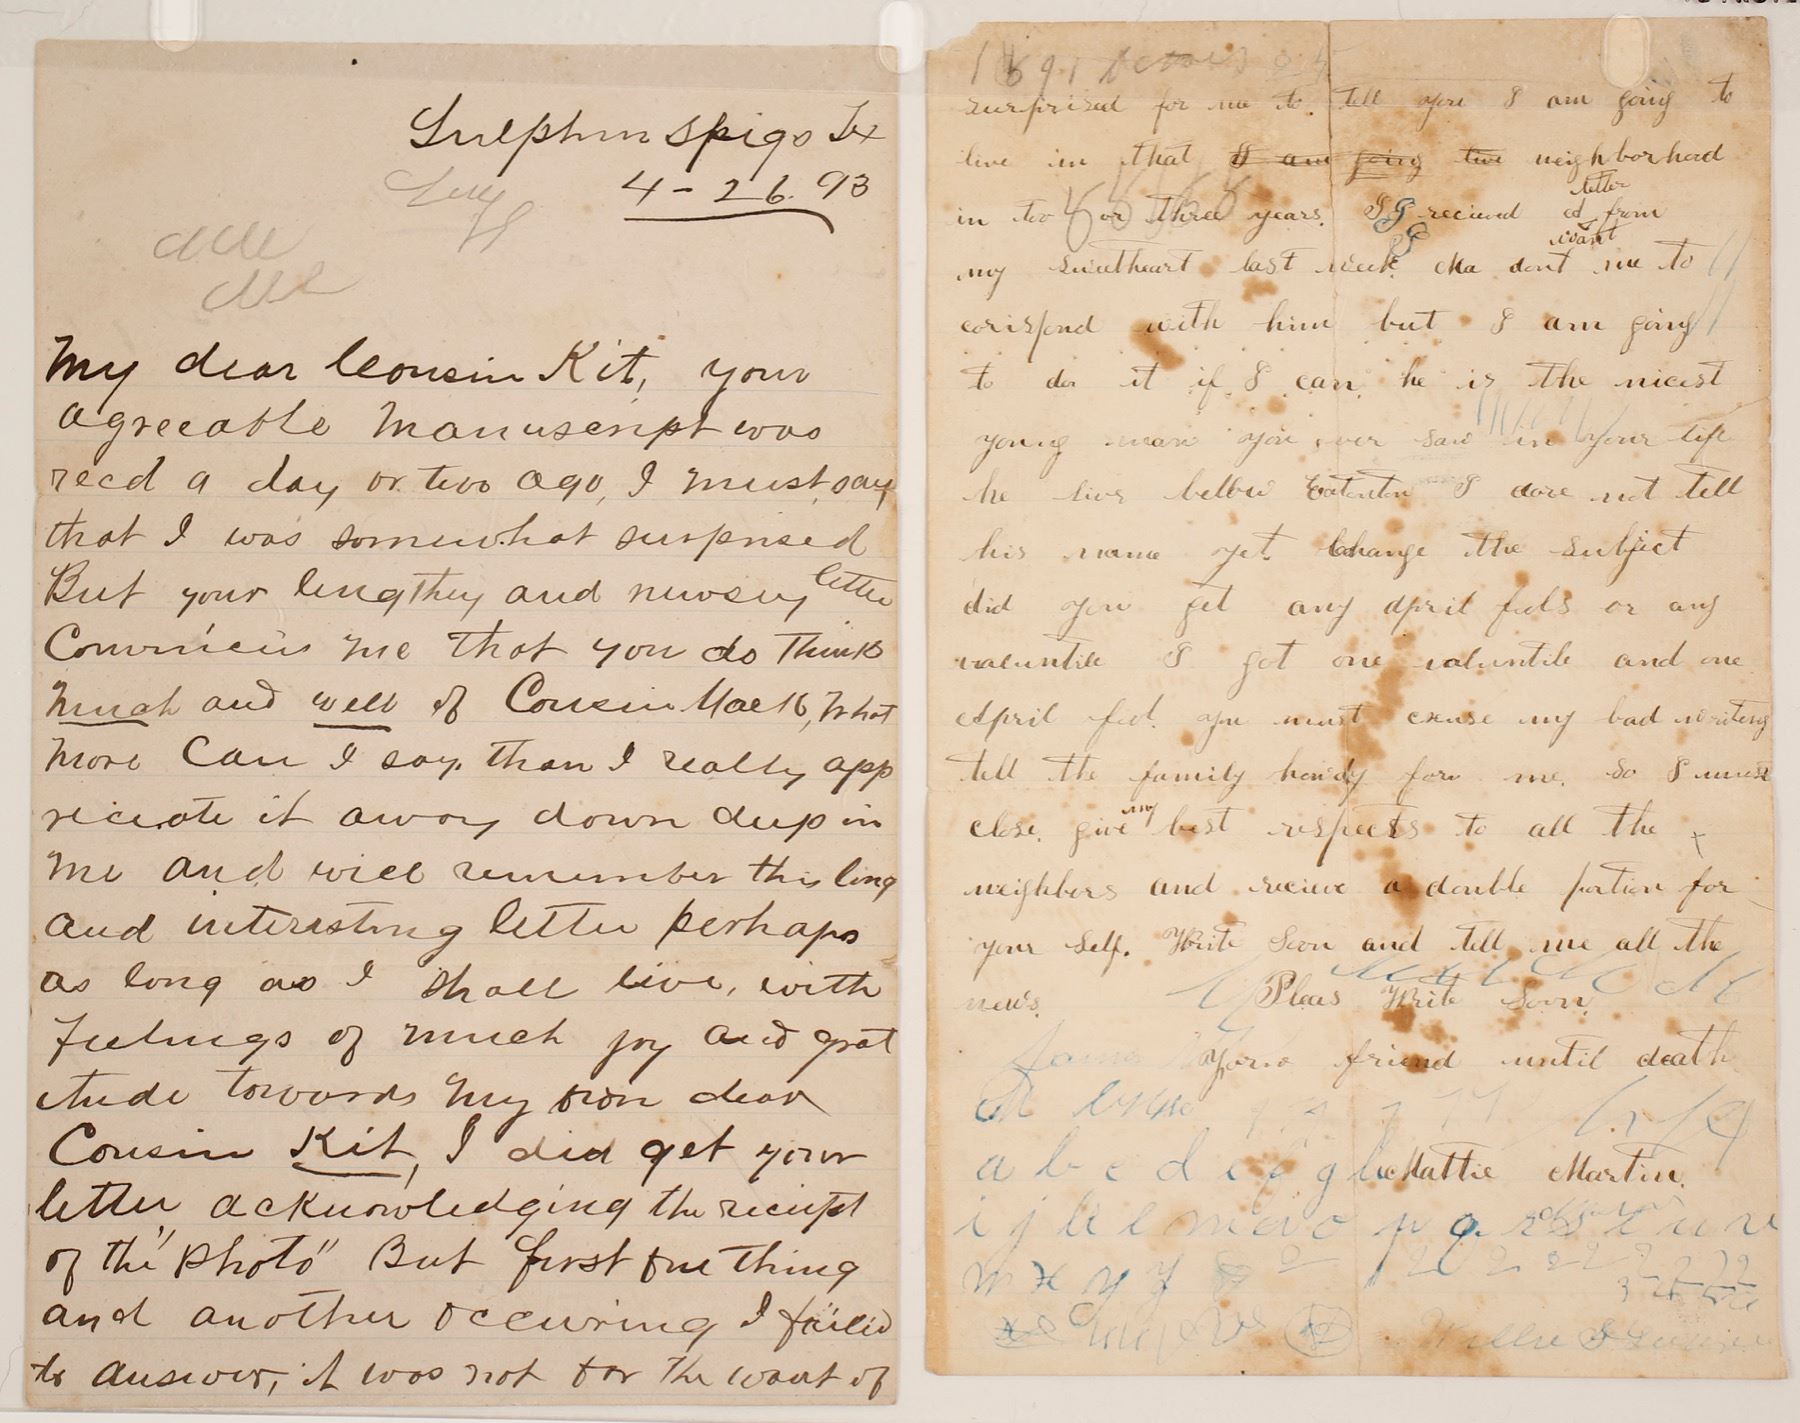 Sulphur Spigs Tx
4-26. 93
My dear Cousin Kit, your
agreeable Manuscript was
recd a day or two ago, I must say
that I was somewhat surprised
But your lengthy and newsy letter
Convinces me that you do think
much and well of Cousin Mack, What
More Can I say, than I really app
reciate it away down deep in
me and will remember this long
and interesting letter perhaps
as long as I shall live, with
feelings of much joy and grat
itude towards My own dear
Cousin Kit, I did get your
letter acknowledging the reciept
of the "Photo" But first one thing
and another occuring I failed
to answer, it was not for the want of
1891
surprised for me to tell you I am going to
live in that I am going live neighborhood
in two or three years. I recieved a letter from
my sweetheart last week. Ma dont want me to
corispond with him but I am going
to do it if I can. he is the nicest
young man you ever saw in your life
he livs bellow Eatonton I dare not tell
his name yet. Change the subject
did you get any April fools or any
valuntile I got one valuntile and one
April fool. you must excuse my bad writing
tell the family howdy for me. so I must
close. give my best respects to all the
neighbors and recieve a double portion for
your self. Write Soon and tell me all the
news. Pleas Write Soon.
Your friend until death
a b c d e f g h Mattie Martin.
i j k l m n o p q r s t u v
w x y z
Willie